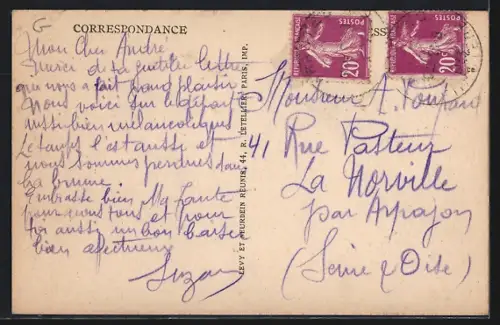 CORRESPONDANCE
Mon Cher André
Merci de ta gentille lettre
qui nous a fait grand plaisir
Nous voici sur le départ
aussi bien mélancoliques
Le temps l'est aussi et
nous sommes perdues dans
la brume
Embrasse bien Ma Tante
pour nous tous et pour
toi aussi un bon baiser
bien affectueux
Suzanne
LEVY ET NEURDEIN RÉUNIS, 44, R. LETELLIER, PARIS, IMP.
POSTES
20c
REPUBLIQUE FRANÇAISE
POSTES
20c
REPUBLIQUE FRANÇAISE
Monsieur A.
41 Rue Pasteur
La Norville
par Arpajon
(Seine & Oise)